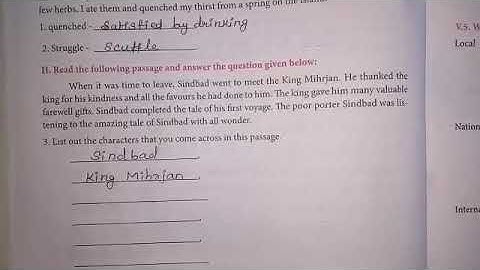 few herbs. I ate them and quenched my thirst from a spring on the
1. quenched - Satisfied by drinking
2. Struggle - Scuffle
II. Read the following passage and answer the question given below:
When it was time to leave, Sindbad went to meet the King Mihrjan. He thanked the
king for his kindness and all the favours he had done to him. The king gave him many valuable
farewell gifts. Sindbad completed the tale of his first voyage. The poor porter Sindbad was lis-
tening to the amazing tale of Sindbad with all wonder.
3. List out the characters that you come across in this passage
Sindbad
King Mihrjan
V.5. W
Local
Nation
Interna